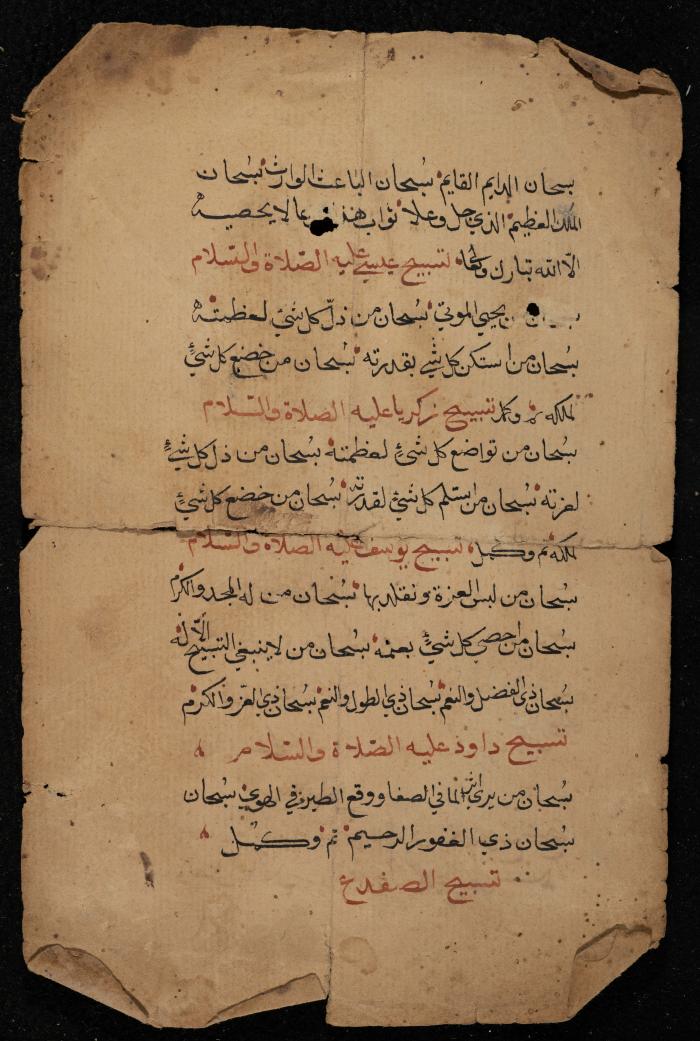 سبحان الدايم القايم سبحان الباعث الوارث سبحان
الملك العظيم الذي جل وعلا ثواب هذا مما لا يحصيه
الا الله تبارك وتعالى تسبيح عيسى عليه الصلاة والسلام
يحيي الموتى سبحان من ذل كل شي لعظمته
سبحان من استكن كل شي بقدرته سبحان من خضع كل شئ
لملكه تم وكمل تسبيح زكريا عليه الصلاة والسلام
سبحان من تواضع كل شئ لعظمته سبحان من ذل كل شئ
لعزته سبحان من استسلم كل شئ لقدرته سبحان من خضع كل شئ
لملكه تم وكمل تسبيح يوسف عليه الصلاة والسلام
سبحان من لبس العزة وتقلد بها سبحان من له المجد والكرم
سبحان من احصى كل شئ بعلمه سبحان من لا ينبغي التسبيح الا له
سبحان ذي الفضل والنعم سبحان ذي الطول والنعم سبحان ذي العز والكرم
تسبيح داود عليه الصلاة والسلام
سبحان من يرى اثر في الصفا ووقع الطير في الهوى سبحان
سبحان ذي الغفور الرحيم تم وكمل
تسبيح الضفدع